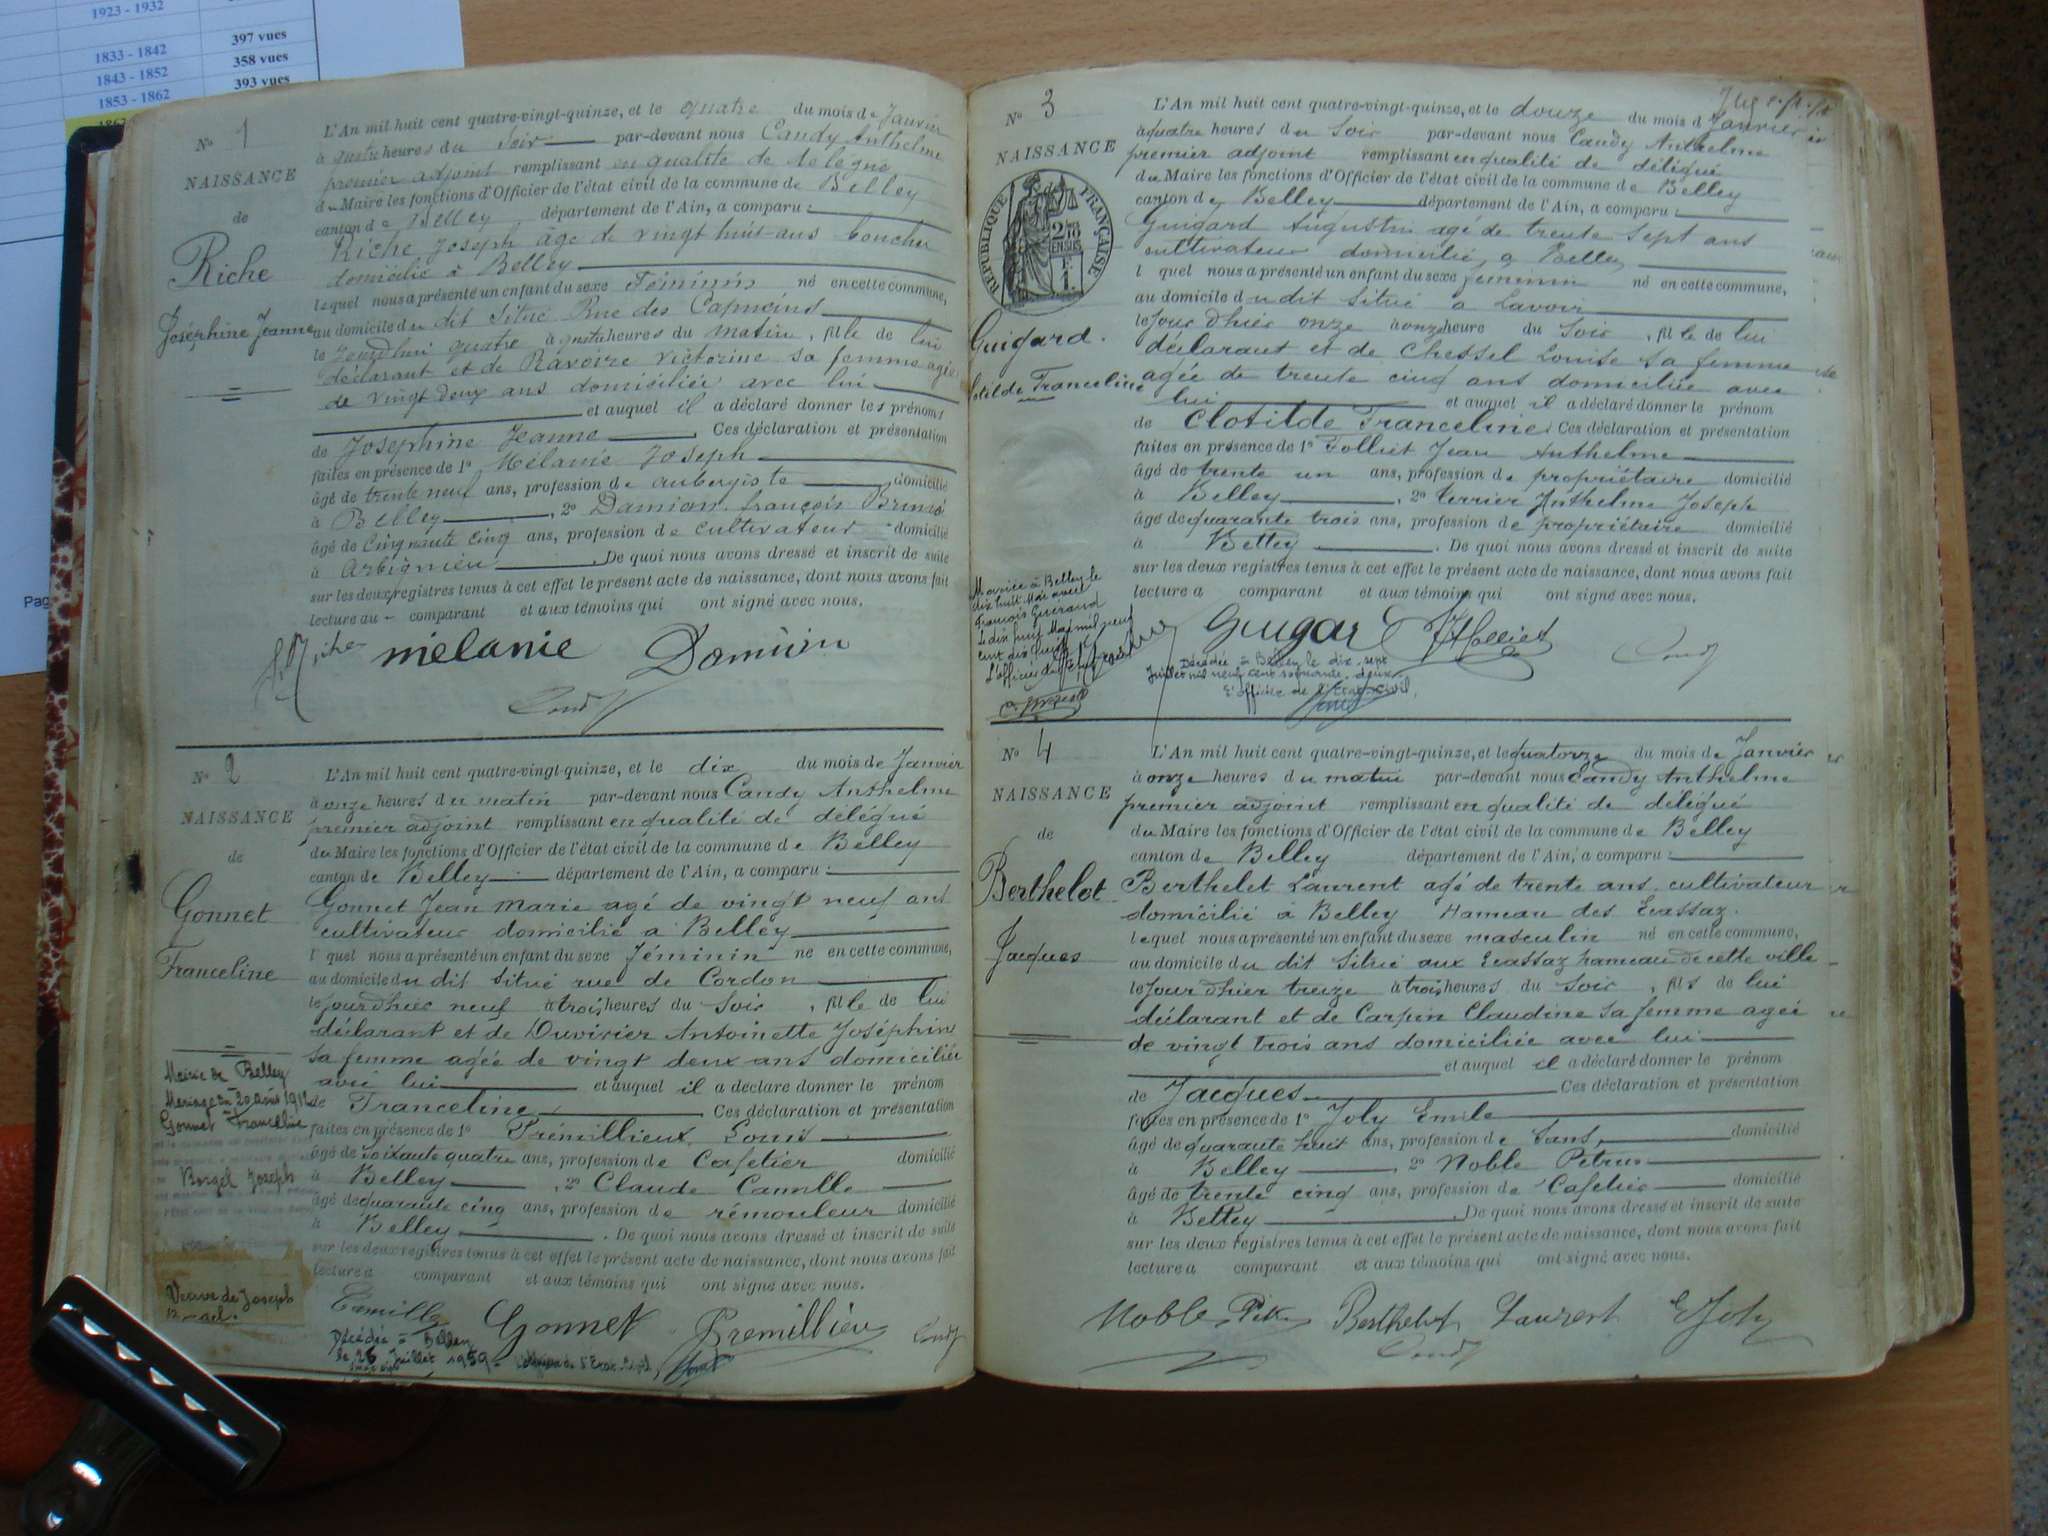 1923 - 1932
397 vues
1833 - 1842
358 vues
1843 - 1852
393 vues
1853 - 1862
Pag
N° 1
NAISSANCE
de
Riche
Joséphine Jeanne
L'An mil huit cent quatre-vingt-quinze, et le quatre du mois de Janvier
à quatre heures du Soir par-devant nous Candy Anthelme
premier adjoint remplissant en qualité de délégué
du Maire les fonctions d'Officier de l'état civil de la commune de Belley
canton de Belley département de l'Ain, a comparu :
Riche Joseph âgé de vingt huit ans boucher
domicilié à Belley
lequel nous a présenté un enfant du sexe Féminin né en cette commune,
au domicile du dit Situé Rue des Capucins
le quatre à quatre heures du matin, fille de lui
déclarant et de Ravoire Victorine sa femme agée
de vingt deux ans domiciliée avec lui
et auquel il a déclaré donner les prénoms
de Joséphine Jeanne Ces déclaration et présentation
faites en présence de 1° Mélanie Joseph
âgé de trente neuf ans, profession de aubergiste domicilié
à Belley, 2° Damian François
âgé de Cinquante cinq ans, profession de cultivateur domicilié
à Arbignieu. De quoi nous avons dressé et inscrit de suite
sur les deux registres tenus à cet effet le présent acte de naissance, dont nous avons fait
lecture au comparant et aux témoins qui ont signé avec nous.
mélanie
Candy
N° 2
NAISSANCE
de
Gonnet
Franceline
L'An mil huit cent quatre-vingt-quinze, et le dix du mois de Janvier
à onze heures du matin par-devant nous Candy Anthelme
premier adjoint remplissant en qualité de délégué
du Maire les fonctions d'Officier de l'état civil de la commune de Belley
canton de Belley département de l'Ain, a comparu :
Gonnet Jean Marie agé de vingt neuf ans
cultivateur domicilié à Belley
l quel nous a présenté un enfant du sexe féminin né en cette commune,
au domicile du dit Situé rue de Cordon
le jour d'hier neuf à trois heures du Soir, fille de lui
déclarant et de Duvivier Antoinette Joséphine
sa femme agée de vingt deux ans domiciliée
avec lui et auquel il a déclaré donner le prénom
de Franceline Ces déclaration et présentation
faites en présence de 1° Prémillieux Louis
âgé de soixante quatre ans, profession de Cafetier domicilié
à Belley, 2° Claude Camille
âgé de quarante cinq ans, profession de rémouleur domicilié
à Belley. De quoi nous avons dressé et inscrit de suite
sur les deux registres tenus à cet effet le présent acte de naissance, dont nous avons fait
lecture a comparant et aux témoins qui ont signé avec nous.
Mairie de Belley
Mariage du 20 août
Gonnet Franceline
Joseph
Veuve de Joseph
Camille Gonnet Premillieu Candy
Décédée à Belley
le 26 Juillet 1959 - L'officier de l'Etat-Civil,
N° 3
NAISSANCE
RÉPUBLIQUE FRANÇAISE
Guigard
Franceline
L'An mil huit cent quatre-vingt-quinze, et le douze du mois de Janvier
à quatre heures du Soir par-devant nous Candy Anthelme
premier adjoint remplissant en qualité de délégué
du Maire les fonctions d'Officier de l'état civil de la commune de Belley
canton de Belley département de l'Ain, a comparu :
Guigard Augustin agé de trente sept ans
cultivateur domicilié à Belley
l quel nous a présenté un enfant du sexe féminin né en cette commune,
au domicile du dit Situé a Lavoir
le jour d'hier onze à onze heure du Soir, fille de lui
déclarant et de Chessel Louise sa femme
agée de trente cinq ans domiciliée avec
lui et auquel il a déclaré donner le prénom
de Clotilde Franceline. Ces déclaration et présentation
faites en présence de 1° Folliet Jean Anthelme
âgé de trente un ans, profession de propriétaire domicilié
à Belley, 2° Terrier Anthelme Joseph
âgé de quarante trois ans, profession de propriétaire domicilié
à Belley. De quoi nous avons dressé et inscrit de suite
sur les deux registres tenus à cet effet le présent acte de naissance, dont nous avons fait
lecture a comparant et aux témoins qui ont signé avec nous.
Mariée à Belley le
dix huit Mai avec
François
le dix huit Mai mil neuf
cent dix
L'officier
Guigar Candy
Décédée à Belley le dix-sept
Juillet mil neuf cent soixante-deux
L'officier de l'Etat-Civil,
N° 4
NAISSANCE
de
Berthelot
Jacques
L'An mil huit cent quatre-vingt-quinze, et le quatorze du mois de Janvier
à onze heures du matin par-devant nous Candy Anthelme
premier adjoint remplissant en qualité de délégué
du Maire les fonctions d'Officier de l'état civil de la commune de Belley
canton de Belley département de l'Ain, a comparu :
Berthelet Laurent agé de trente ans cultivateur
domicilié à Belley Hameau des Ecassaz
lequel nous a présenté un enfant du sexe masculin né en cette commune,
au domicile du dit Situé aux Ecassaz hameau de cette ville
le jour d'hier treize à trois heures du Soir, fils de lui
déclarant et de Carpin Claudine sa femme agée
de vingt trois ans domiciliée avec lui
et auquel il a déclaré donner le prénom
de Jacques Ces déclaration et présentation
faites en présence de 1° Joly Emile
âgé de quarante huit ans, profession de Sans, domicilié
à Belley, 2° Noble Petrus
âgé de trente cinq ans, profession de Cafetier domicilié
à Belley. De quoi nous avons dressé et inscrit de suite
sur les deux registres tenus à cet effet le présent acte de naissance, dont nous avons fait
lecture a comparant et aux témoins qui ont signé avec nous.
Noble Berthelot Laurent E Joly
Candy